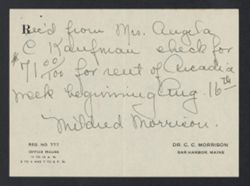 Rec'd from Mrs. Angela
C Kaufman check for
$71 00/100 for rent of Arcadia
week beginning Aug. 16th
Mildred Morrison.
REG. NO 777
OFFICE HOURS
DR. C. C. MORRISON
BAR HARBOR, MAINE